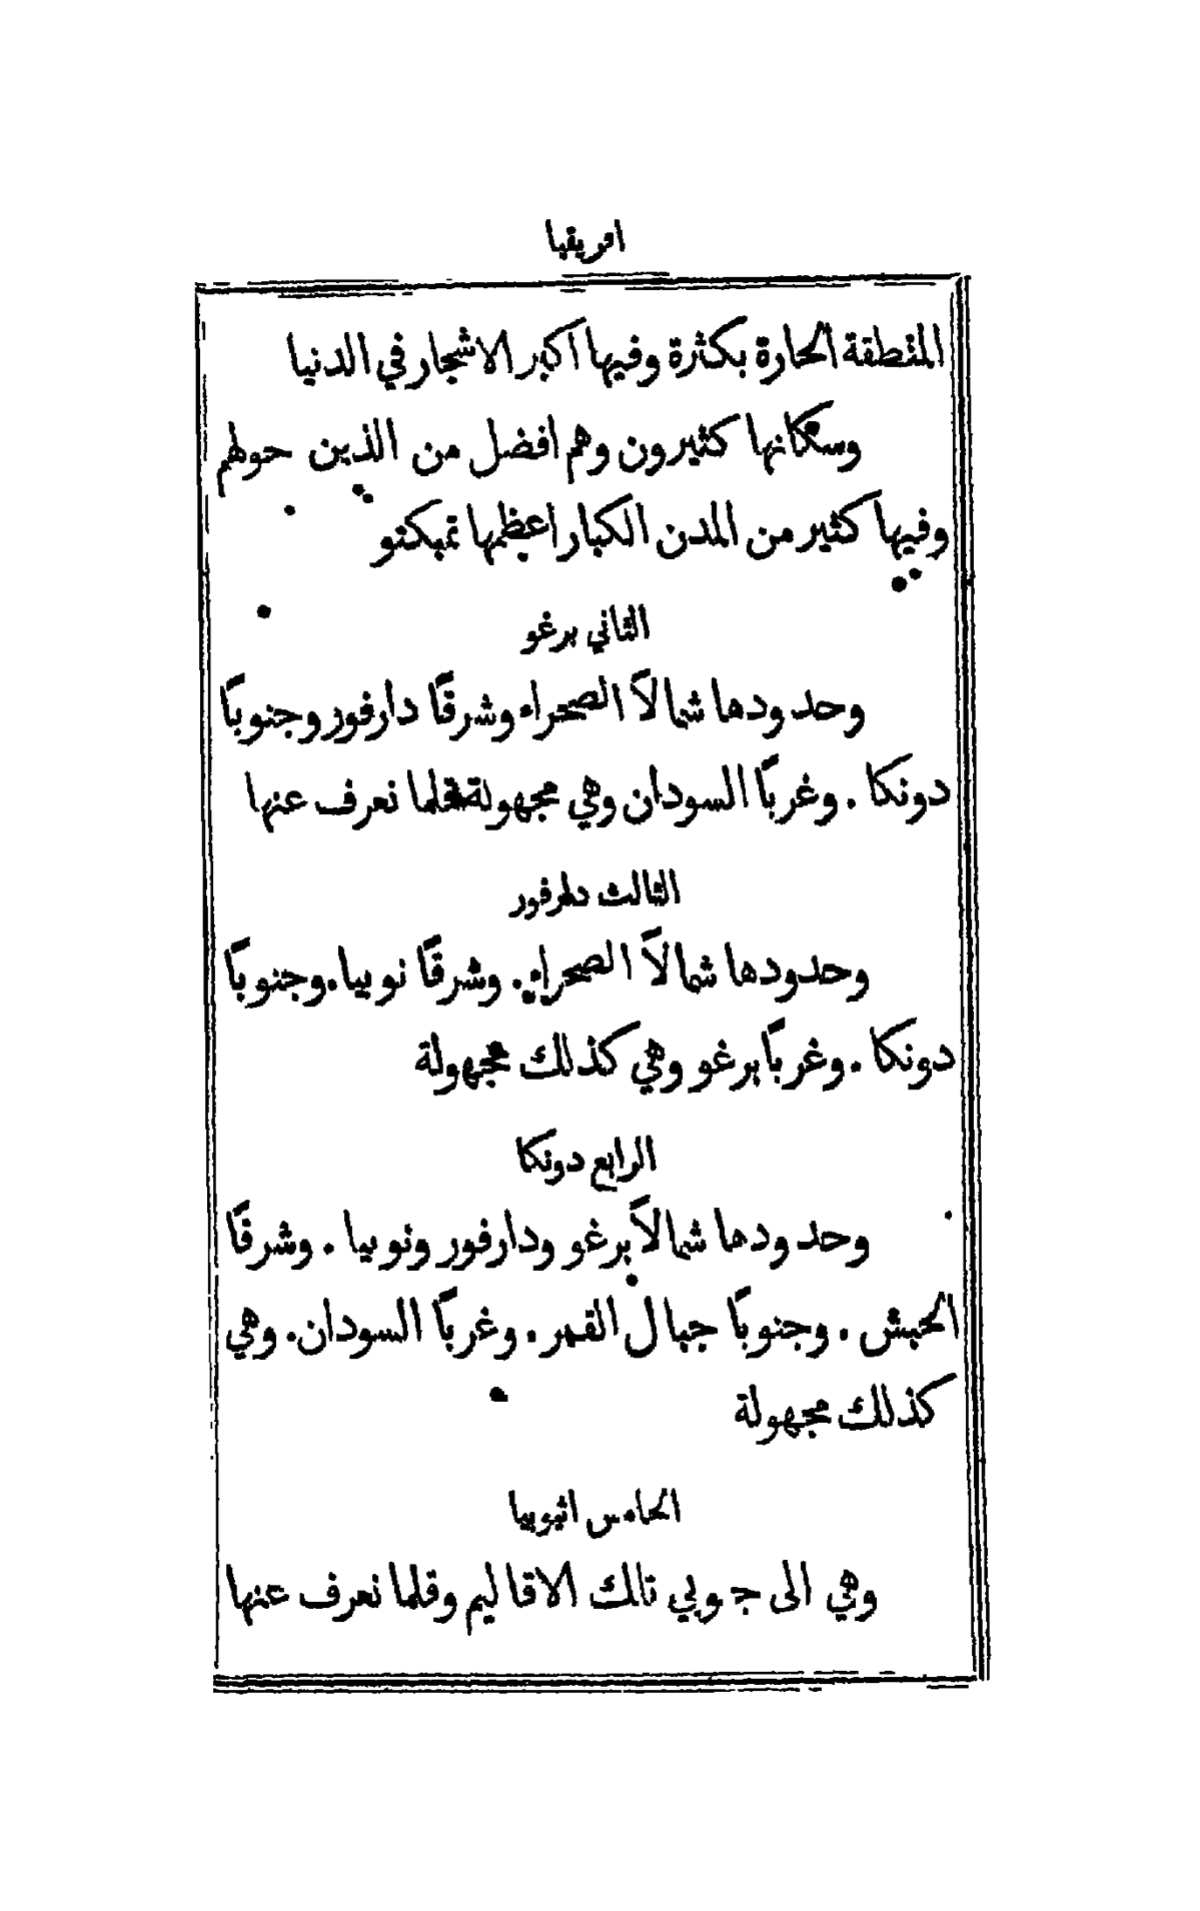 افريقيا
المنطقة الحارة بكثرة وفيها اكبر الاشجار في الدنيا
وسكانها كثيرون وهم افضل من الذين حولهم
وفيها كثير من المدن الكبار اعظمها تمبكتو
الثاني برغو
وحدودها شمالاً الصحراء وشرقًا دارفور وجنوبًا
دونكا . وغربًا السودان وهي مجهولة قلما نعرف عنها
الثالث دارفور
وحدودها شمالاً الصحراء. وشرقًا نوبيا. وجنوبًا
دونكا . وغربًا برغو وهي كذلك مجهولة
الرابع دونكا
وحدودها شمالاً برغو ودارفور ونوبيا . وشرقًا
الحبش . وجنوبًا جبال القمر. وغربًا السودان. وهي
كذلك مجهولة
الخامس اثيوبيا
وهي الى جنوبي تلك الاقاليم وقلما نعرف عنها